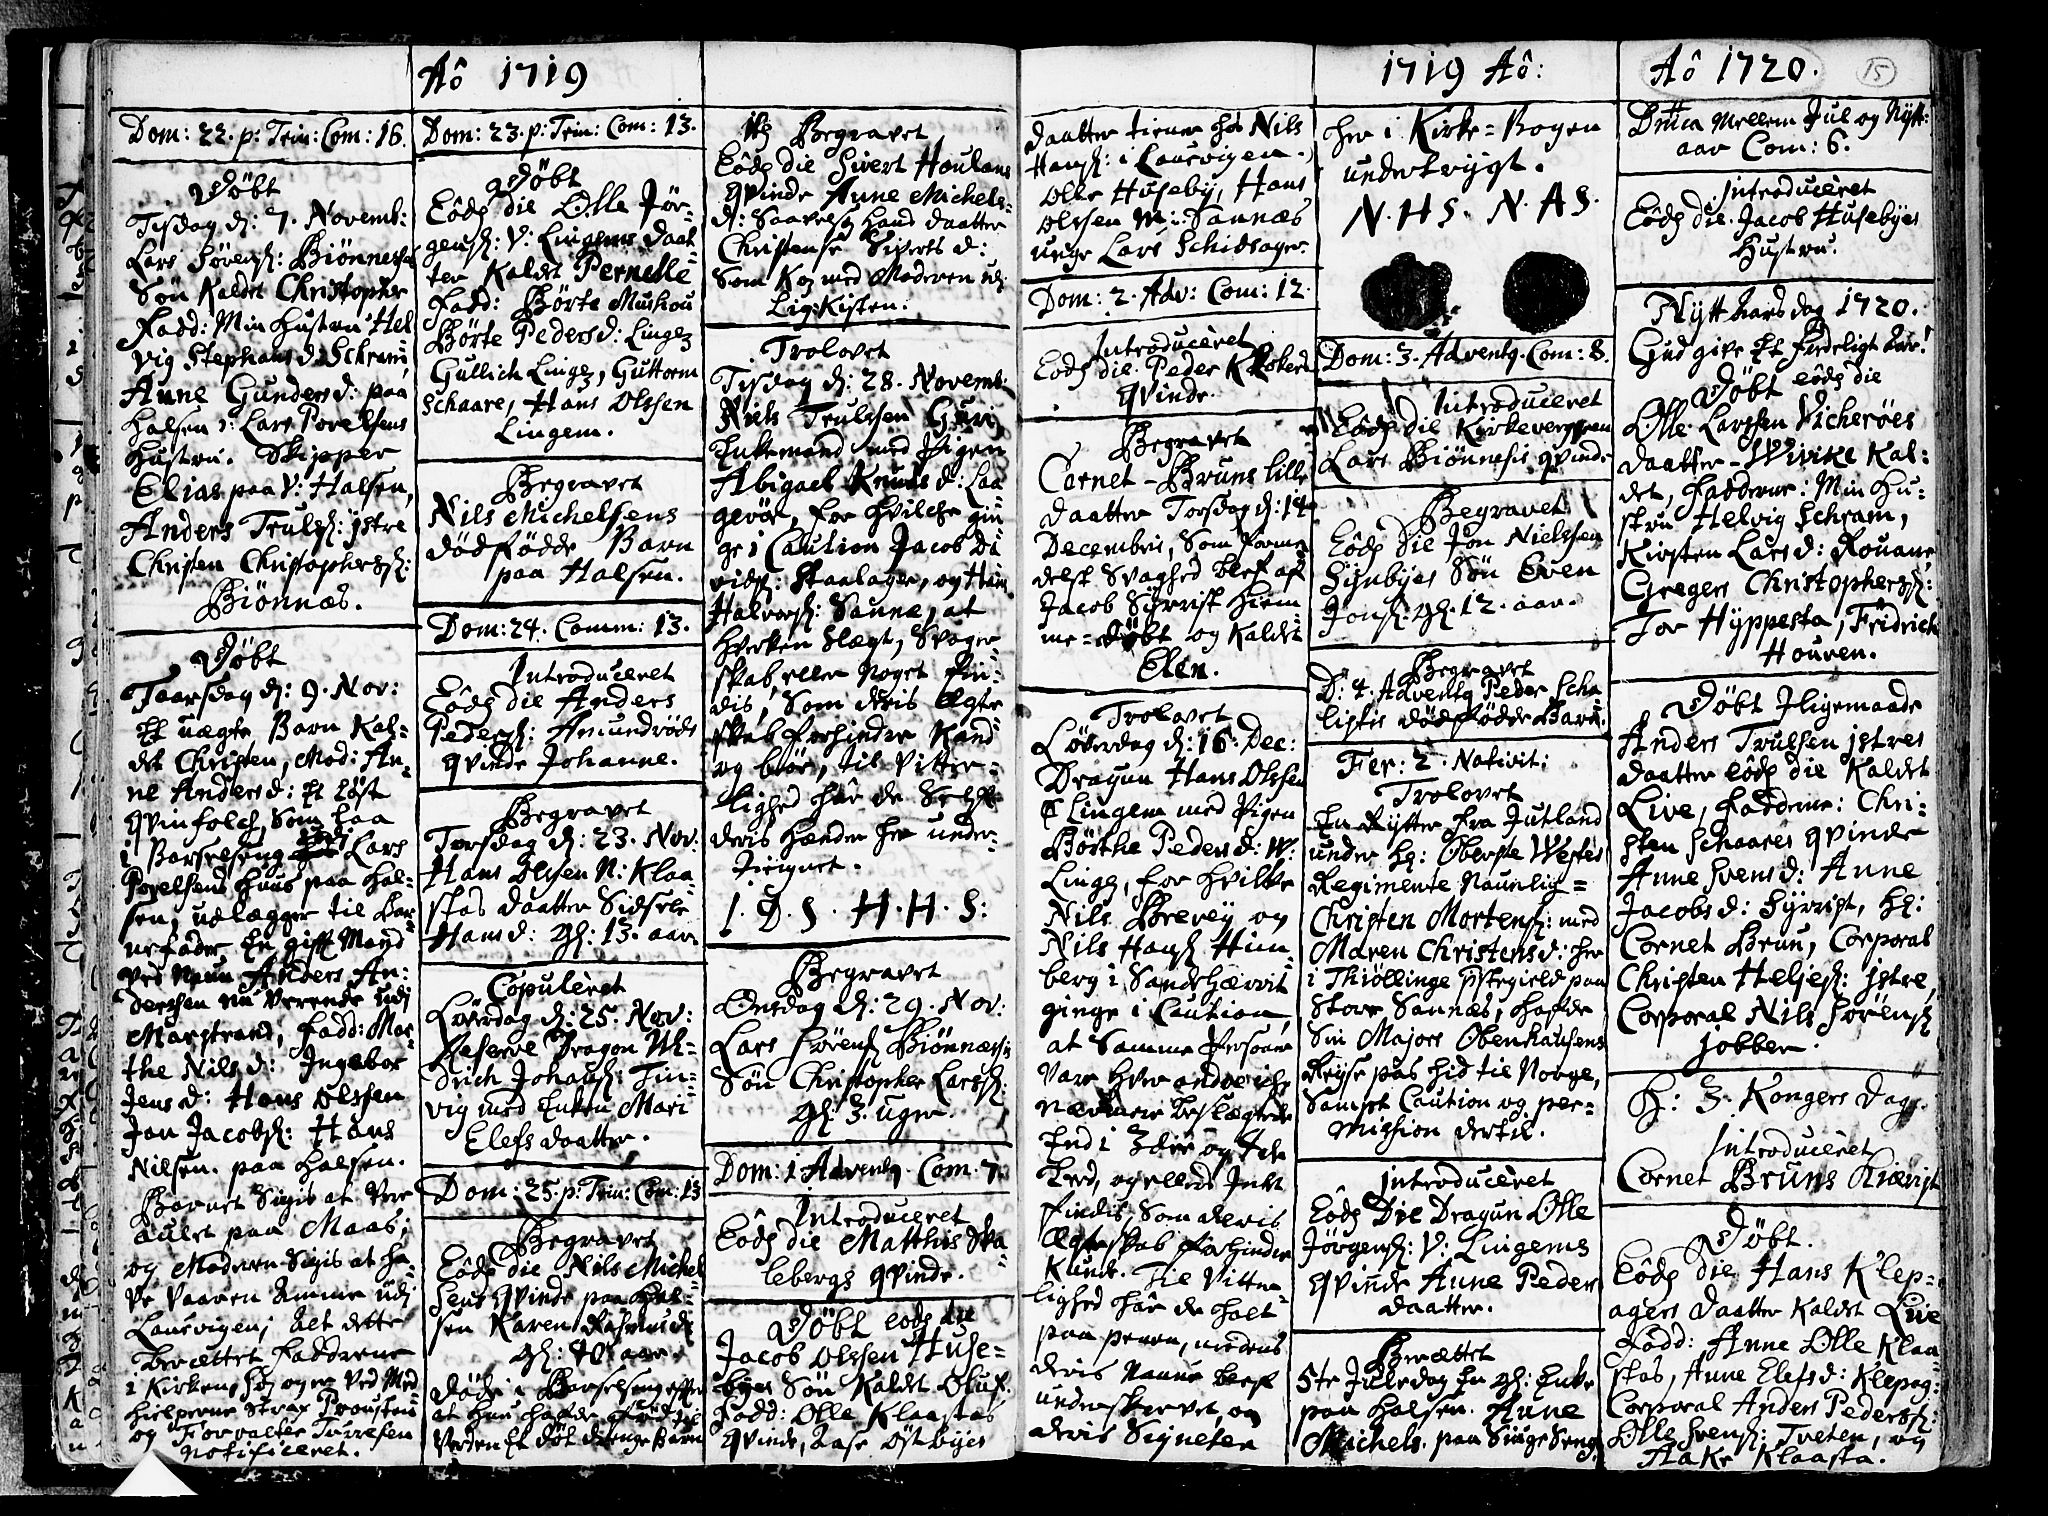 Aô 1719
Dom: 22. p: Trin: Com: 16.
Døbt
Tisdag d: 7. Novemb:
Lars Sørens: Biønnessis
Søn Kaldet Christopher
Fadd: Min Hustru Hel
vig Stephansd: Schram
Anne Gundersd: paa
Halsen, Lars Povelsens
Hustru. Skipper
Elias paa V: Halsen,
Anders Truls: jstre
Christen Christophers:
Biønnæs.
Døbt
Taarsdag d: 9. Nov:
Et uægte Barn Kal-
det Christen, Mod: An-
ne Andersd: Et løst
qvinfolch, som laa
i Barselseng udi Lars
Povelsens Huus paa Hal-
sen, udlægger til Bar-
nefader En gift Mand
ved Navn Anders An-
derssen nu Verende udi
Marstrand, Fadd: Mar-
the Nilsd: Ingebor
Jensd: Hans Olssen
Jon Jacobs: Hans
Nilsen. paa Halsen.
Barnet Sigis at Vere
aulet paa Maas;
og Moderen Sigis at ha-
ve Vaaren Amme udi
Laurvigen; Alt dette
Berettet Fadderne
i Kirken,
hielperne Strax Prousten
og Forvalter
notificeret.
Dom: 23. p: Trin: Com: 13.
Døbt
Eôdem die Olle Jør-
gens: V: Lingems Daat-
ter Kaldet Pernelle
Fadd: Børte Muskou
Børte Pedersd: Linge
Gullich Linge, Guttorm
Schaare, Hans Olssen
Lingem.
Begravet
Nils Michelsens
Dødfødde Barn
paa Halsen.
Dom: 24. Comm: 13.
Introduceret
Eôdem die Anders
Peders: Amundrøds
qvinde Johanne.
Begravet
Torsdag d: 23. Nov:
Hans Olssen N: Klaa-
stas Daatter Sidsele
Hansd: gl: 13. aar
Copuleret
Løverdag d: 25. Nov:
Reserve Dragon
drich Johans:
vig med Enken Mari
Elefs daatter.
Dom: 25. p: Trin: Com: 13
Begravet
Eôdem die Nils Michel
sens qvinde paa Hal-
sen Karen Rasmusd:
gl: 40 aar
Døde i Barselseng efter
at hun hafde
Verden Et Barn
Begravet
Eôdem die Sivert Houlans
qvinde Anne Michels-
d: Saavelsom hand daatter
Christense Siverts d:
Som Kom med Moderen udi
Lig-Kisten.
Trolovet
Tisdag d: 28. Novemb:
Niels Trulssen Guri
Enkemand med Pigen
Abigael Knuds d: Laa-
gerød, for hvilche gin
ge i Caution Jacob Da
vids: Haalager, og Han
Halvors: Sanne, at
hverken Slegt, Svoger-
skab eller Noget Fin-
dis, Som deris Ægte
skab forhindre Kand
og bør, til Vitter-
lighed har de Selff
deris Hænder her under-
tegnet.
J. D. S. H. H. S:
Begravet
Onsdag d: 29. Nov:
Lars Sørens Biønnessis
Søn Christopher Larss:
gl: 3. uger.
Dom: 1 Advent. Com. 7.
Introduceret
Eôdem die Matthis Ska-
lebergs qvinde.
Døbt eodem die
Jacob Olssen Huse-
byes Søn Kaldet Oluf
Fadd: Olle Klaastas
qvinde, Aase Østbyes
daatter tiener hos Nils
Hans: i Laurvigen.
Olle Huseby, Hans
Olssen M: Sannæs
unge Lars Schidsager.
Dom: 2. Adv: Com: 12.
Introduceret
Eodem die Peder Klokers
qvinde.
Begravet
Cornet Bruns lille
daatter Torsdag d: 14
Decembris, Som forme-
delst Svaghed blef af
Jacob Syvrist hiem
me-døbt og Kaldet
Elen.
Trolovet
Løverdag d: 16. Dec:
Dragun Hans Olssen
Lingem med Pigen
Børthe Peders d: W:
Linge, for hvilke
Nils Brevey og
Nils Hans Him-
berg i Sandehærrit
ginge i Caution,
at Samme Persone
Vare hver andre iche
nærmere Beslægtede
End i 3die og 4de
Led, og ellers Intet
findis, Som deris
Ægteskab forhindre
Kunde. Til Vitter-
lighed har de holt
paa penen, medens
deris Navne blef
underskrevet, og
deris Signeter
1719 Aô:
her i Kirke-Bogen
undertrygt.
N. H. S. N. A S.
Dom: 3. Advent. Com: 8.
Introduceret
Eôdem die Kirkevergeren
Lars Biønnesis qvinde
Begravet
Eôdem die Jon Nielssen
Synbyes Søn Even
Jons: gl: 12. aar.
Begravet
D: 4. Advent Peder Scha-
listis Dødfødde Barn.
Fer: 2. Nativit:
Trolovet
En Rytter fra Jutland
under Hr: Oberste Westes
Regimente Naunlig=
Christen Mortens: med
Maren Christens d: her
i Thiøllinge Pstegield paa
Store Sannæs, hafde
Sin Majors Obenhausens
Reyse pas hid til Norge,
Sampt Caution og per-
mission dertil.
Introduceret
Eôdem Die Dragun Olle
Jørgens: V: Lingems
qvinde Anne Peders
daatter.
Berættet
5te Juledag En gl: Enke
paa Halsen. Anne
Michels. paa Siuge Seng.
Aô 1720. 15
Druca Mellem Jul og Nytt-
aar Com: 6.
Introduceret
Eôdem die Jacob Husebyes
Hustru.
Nytt Aarsdag 1720.
Gud give Et Fredeligt Aar!
Døbt eôdem die
Olle Larssen Vicherøes
Daatter-Wivike Kal-
det, Fadderne. Min Hu-
stru Helvig Schram,
Kirsten Lars d: Rouane
Gregers Christophers:
Tor Hyppesta, Fridrich
Houren.
Døbt Iligemaade
Anders Trulsen jstres
Daatter eôdem die Kaldet
Live, Fadderne: Chri-
sten Schaares qvinde
Anne Svens d: Anne
Jacobs d: Syvrist, Hr:
Cornet Brun, Corporal
Christen Heljes: jstre,
Corporal Nils Sørens
jobber.
H: 3. Kongers Dag.
Introduceret
Cornet Bruns Kiærist
Døbt.
Eôdem die Hans Klep-
agers Daatter Kaldet Live
Fadd: Anne Olle Klaa-
stas, Anne Elefs d: Klepag:
Corporal Anders Peders:
Olle Svens: Tveten, og
Aake Klaasta.